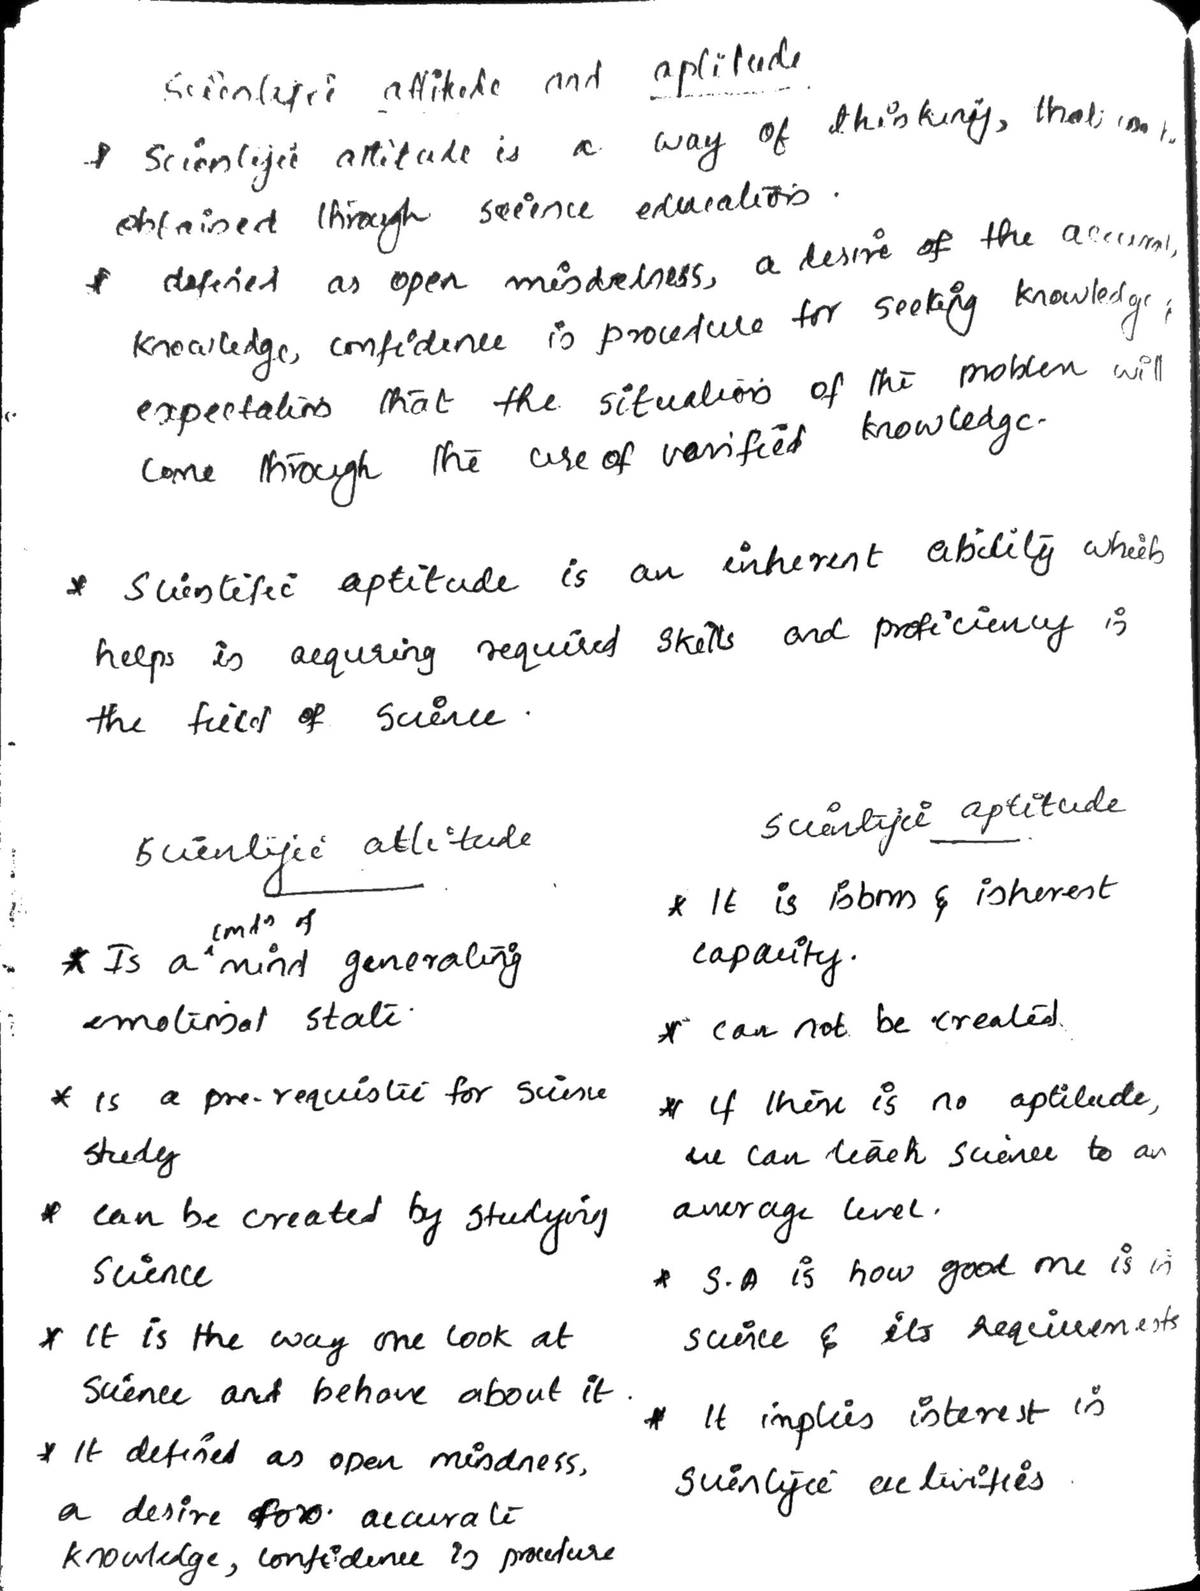 Scientific attitude and aptitude
* Scientific attitude is a way of thinking, that can be
obtained through science education.
* defined as open mindedness, a desire of the accurate
knowledge, confidence in procedure for seeking knowledge &
expectation that the situation of the problem will
come through the use of varified knowledge.
* Scientific aptitude is an inherent ability which
helps in acquring required skills and proficiency in
the field of science.
Scientific attitude
* Is a condn of mind generating
emotional state.
* is a pre-requistie for science
study
* can be created by studying
science
* It is the way one look at
science and behave about it.
* It defined as open mindness,
a desire for accurate
knowledge, confidence in procedure
Scientific aptitude
* It is inborn & inherent
capacity.
* can not be created.
* If there is no aptitude,
we can teach science to an
average level.
* S.A is how good one is in
science & its requirements
* It implies interest in
scientific activities.